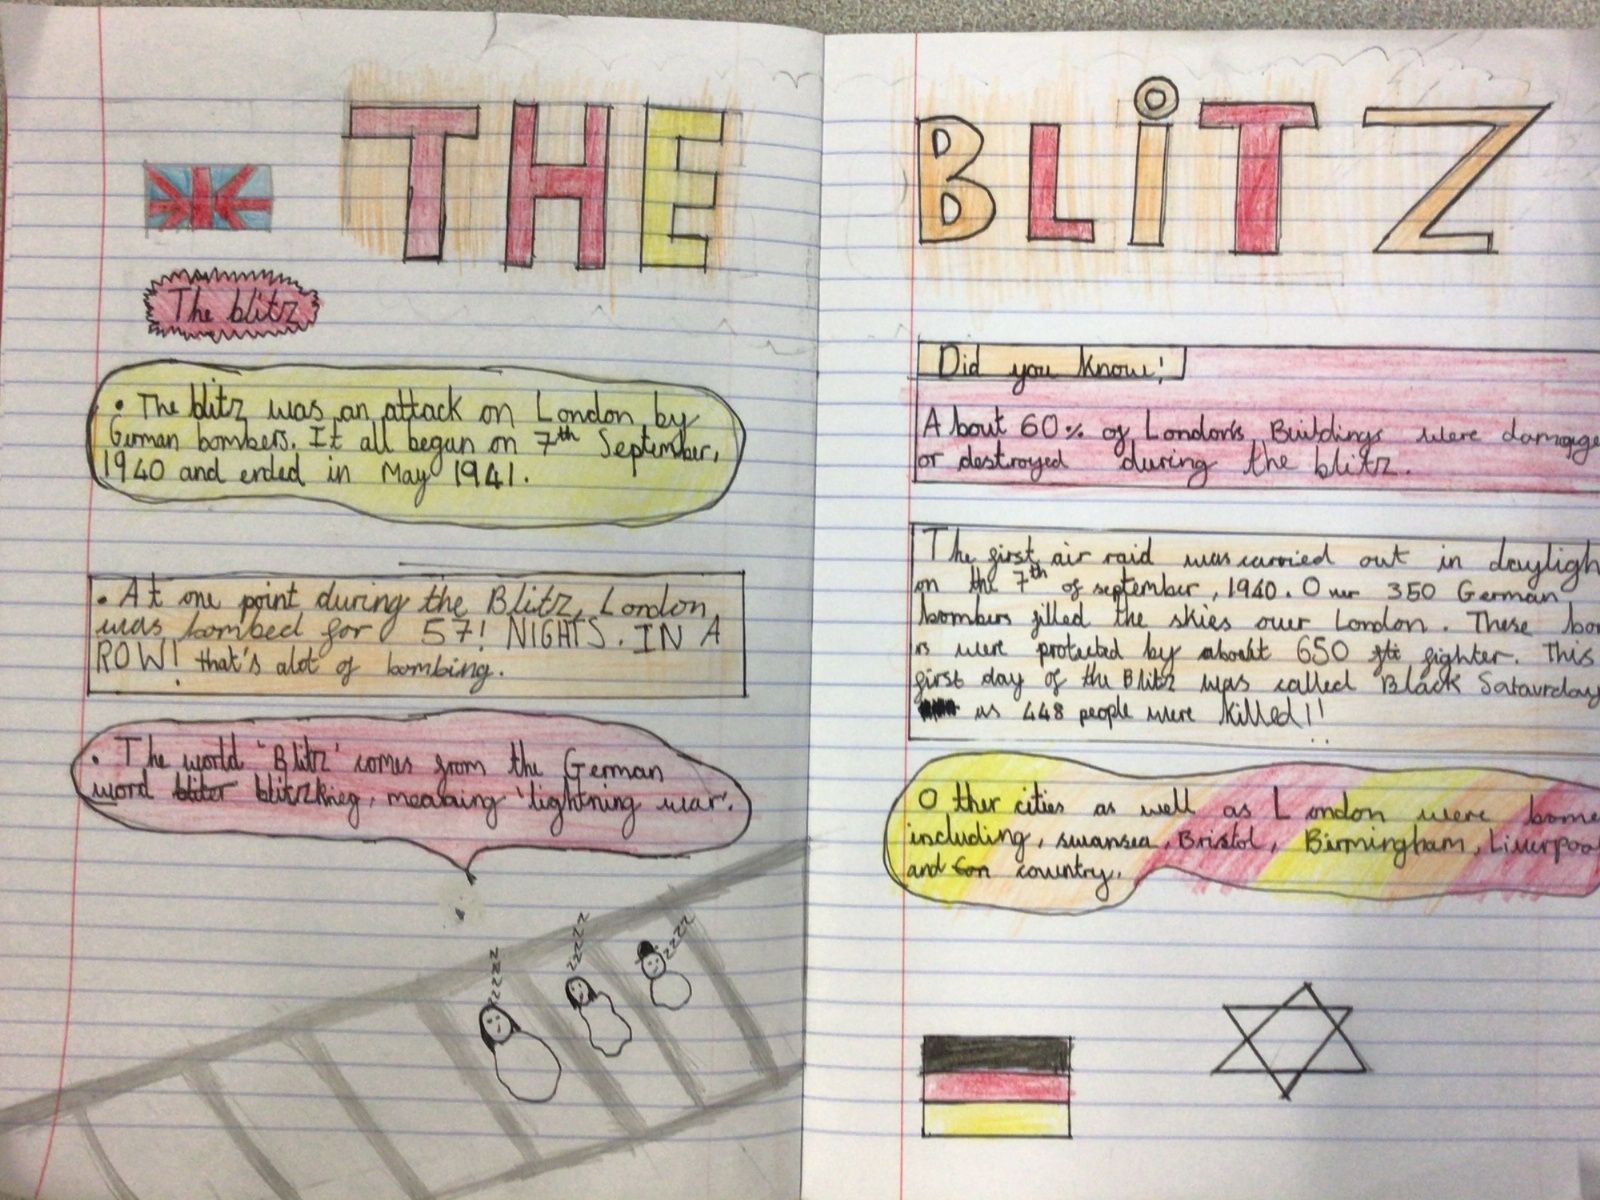 THE BLiTZ
The blitz
• The blitz was an attack on London by
German bombers. It all began on 7th September,
1940 and ended in May 1941.
• At one point during the Blitz, London
was bombed for 57! NIGHTS. IN A
ROW! that's alot of bombing.
• The world 'Blitz' comes from the German
word blitzkrieg, meaning 'lightning war'.
zzzz
zzzz
zzzz
Did you know!
About 60% of London's Buildings were damage
or destroyed during the blitz.
The first air raid was carried out in dayligh
on the 7th of september, 1940. Over 350 German
bombers filled the skies over London. These bo
rs were protected by about 650 fighter. This
first day of the Blitz was called Black Sataurday
as 448 people were killed!!
Other cities as well as London were bome
including, swansea, Bristol, Birmingham, Liverpool
and country.